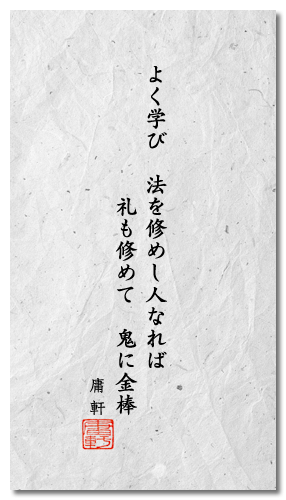 よく学び　法を修めし人なれば
礼も修めて　鬼に金棒
庸軒